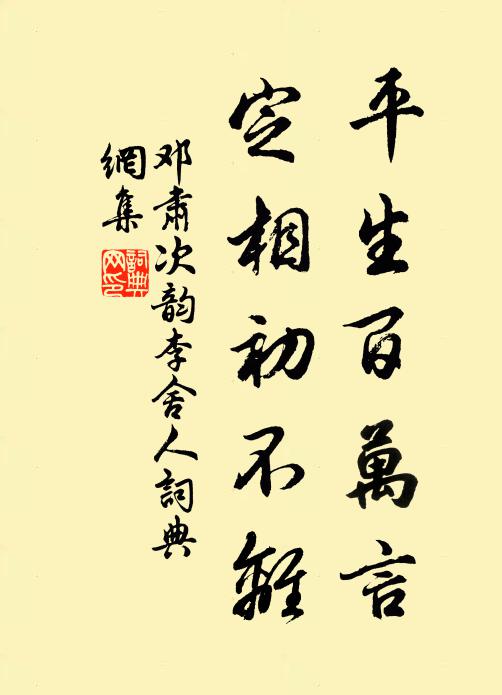 平生百萬言
定相初不離
邓肃次韵李舍人詞典
網集
詞典
网印